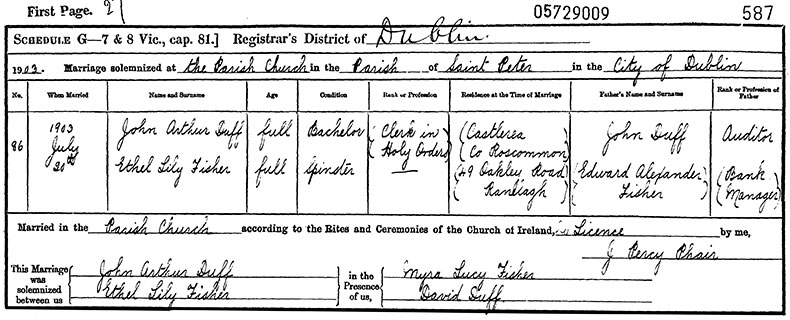 First Page. 2
05729009
587
SCHEDULE G—7 & 8 Vic., cap. 81.] Registrar's District of Dublin.
1903. Marriage solemnized at the Parish Church in the Parish of Saint Peter in the City of Dublin
No. When Married Name and Surname Age Condition Rank or Profession Residence at the Time of Marriage Father's Name and Surname Rank or Profession of Father
86 1903 July 20th
John Arthur Duff full Bachelor Clerk in Holy Orders Castlerea Co Roscommon John Duff Auditor
Ethel Lily Fisher full Spinster — 49 Oakley Road Ranelagh Edward Alexander Fisher Bank Manager
Married in the Parish Church according to the Rites and Ceremonies of the Church of Ireland, by Licence by me,
J Percy Phair
This Marriage was solemnized between us John Arthur Duff
Ethel Lily Fisher
in the Presence of us, Myra Lucy Fisher
David Duff